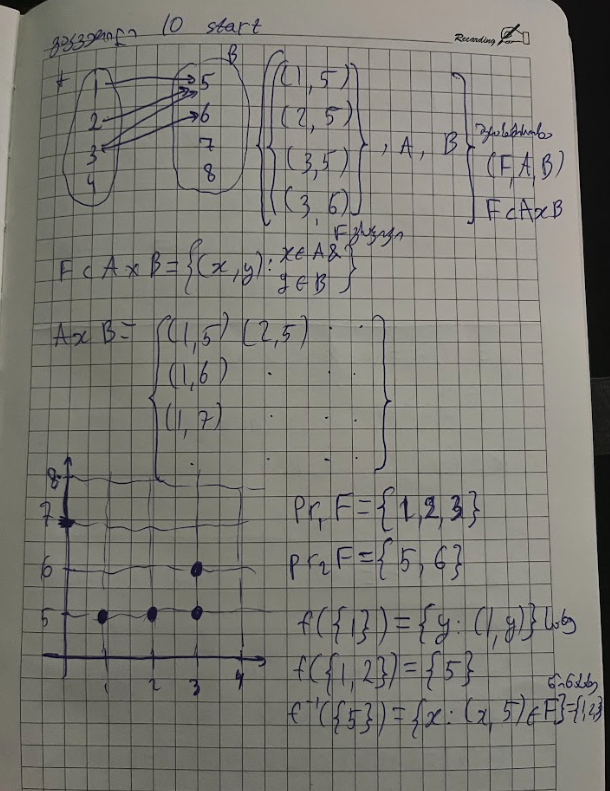 10 start
Recording
A B
1 5
2 6
3 7
4 8
(1, 5)
(2, 5)
(3, 5)
(3, 6)
, A, B
(F, A, B)
F⊂A×B
F
F ⊂ A × B = {(x, y): x∈A & y∈B}
A×B= {(1, 5) (2, 5) . .
(1, 6) . . .
(1, 7) . . .
. . . . }
8
7
6
5
1 2 3 4
Pr₁ F = {1, 2, 3}
pr₂ F = {5, 6}
f({1}) = {y: (1, y)}
f({1, 2}) = {5}
f⁻¹({5}) = {x: (x, 5) ∈ F}